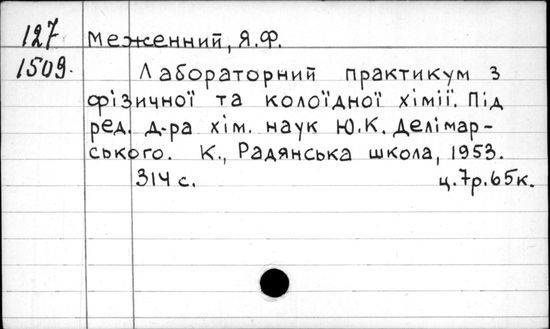 127 Меженний, Я.Ф.
1509. Лабораторний практикум з
фізичної та колоїдної хімії. Під
ред. д-ра хім. наук Ю.К. Делімар-
ського. К., Радянська школа, 1953.
314 с. ц.7р.65к.